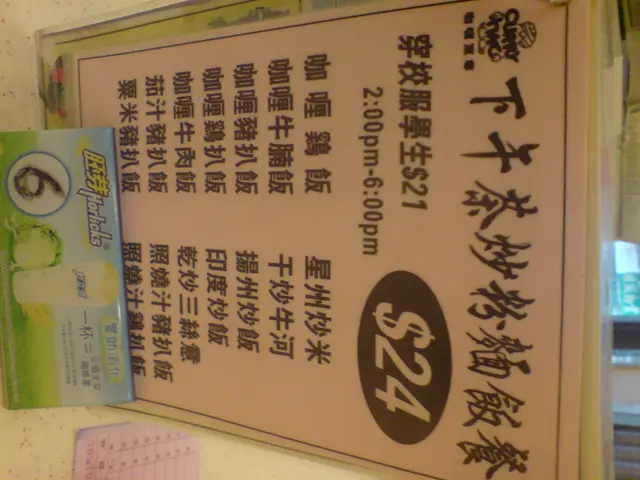 咖喱皇帝
下午茶炒粉麵飯餐
$24
穿校服學生$21
2:00pm-6:00pm
咖喱鷄飯
咖喱牛腩飯
咖喱豬扒飯
咖喱鷄扒飯
咖喱牛肉飯
茄汁豬扒飯
粟米豬扒飯
星州炒米
干炒牛河
揚州炒飯
印度炒飯
乾炒三絲意
照燒汁豬扒飯
照燒汁鷄扒飯
6
Horlicks
一杯二